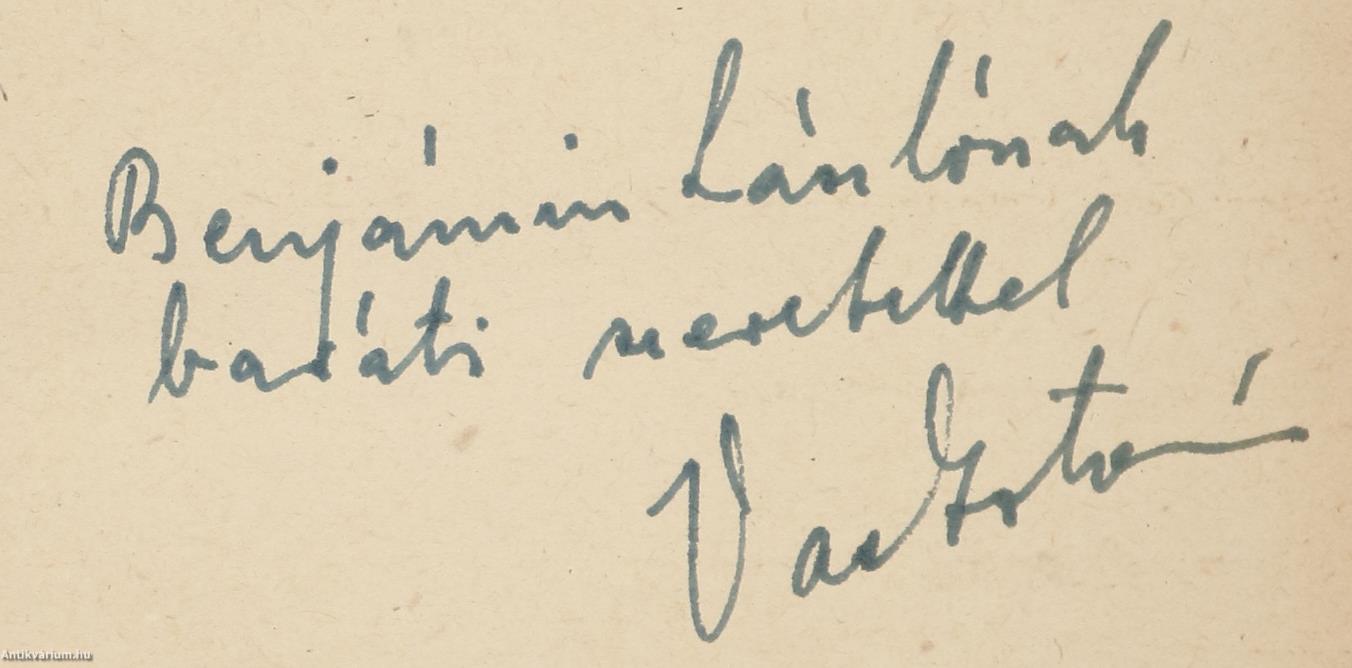 Benjámin Lászlónak
baráti szeretettel
Vas István
Antikvárium.hu